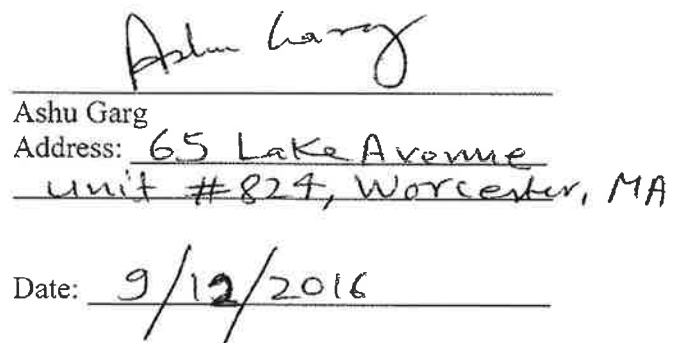 Ashu Garg
Ashu Garg
Address: 65 Lake Avenue
unit #824, Worcester, MA
Date: 9/12/2016